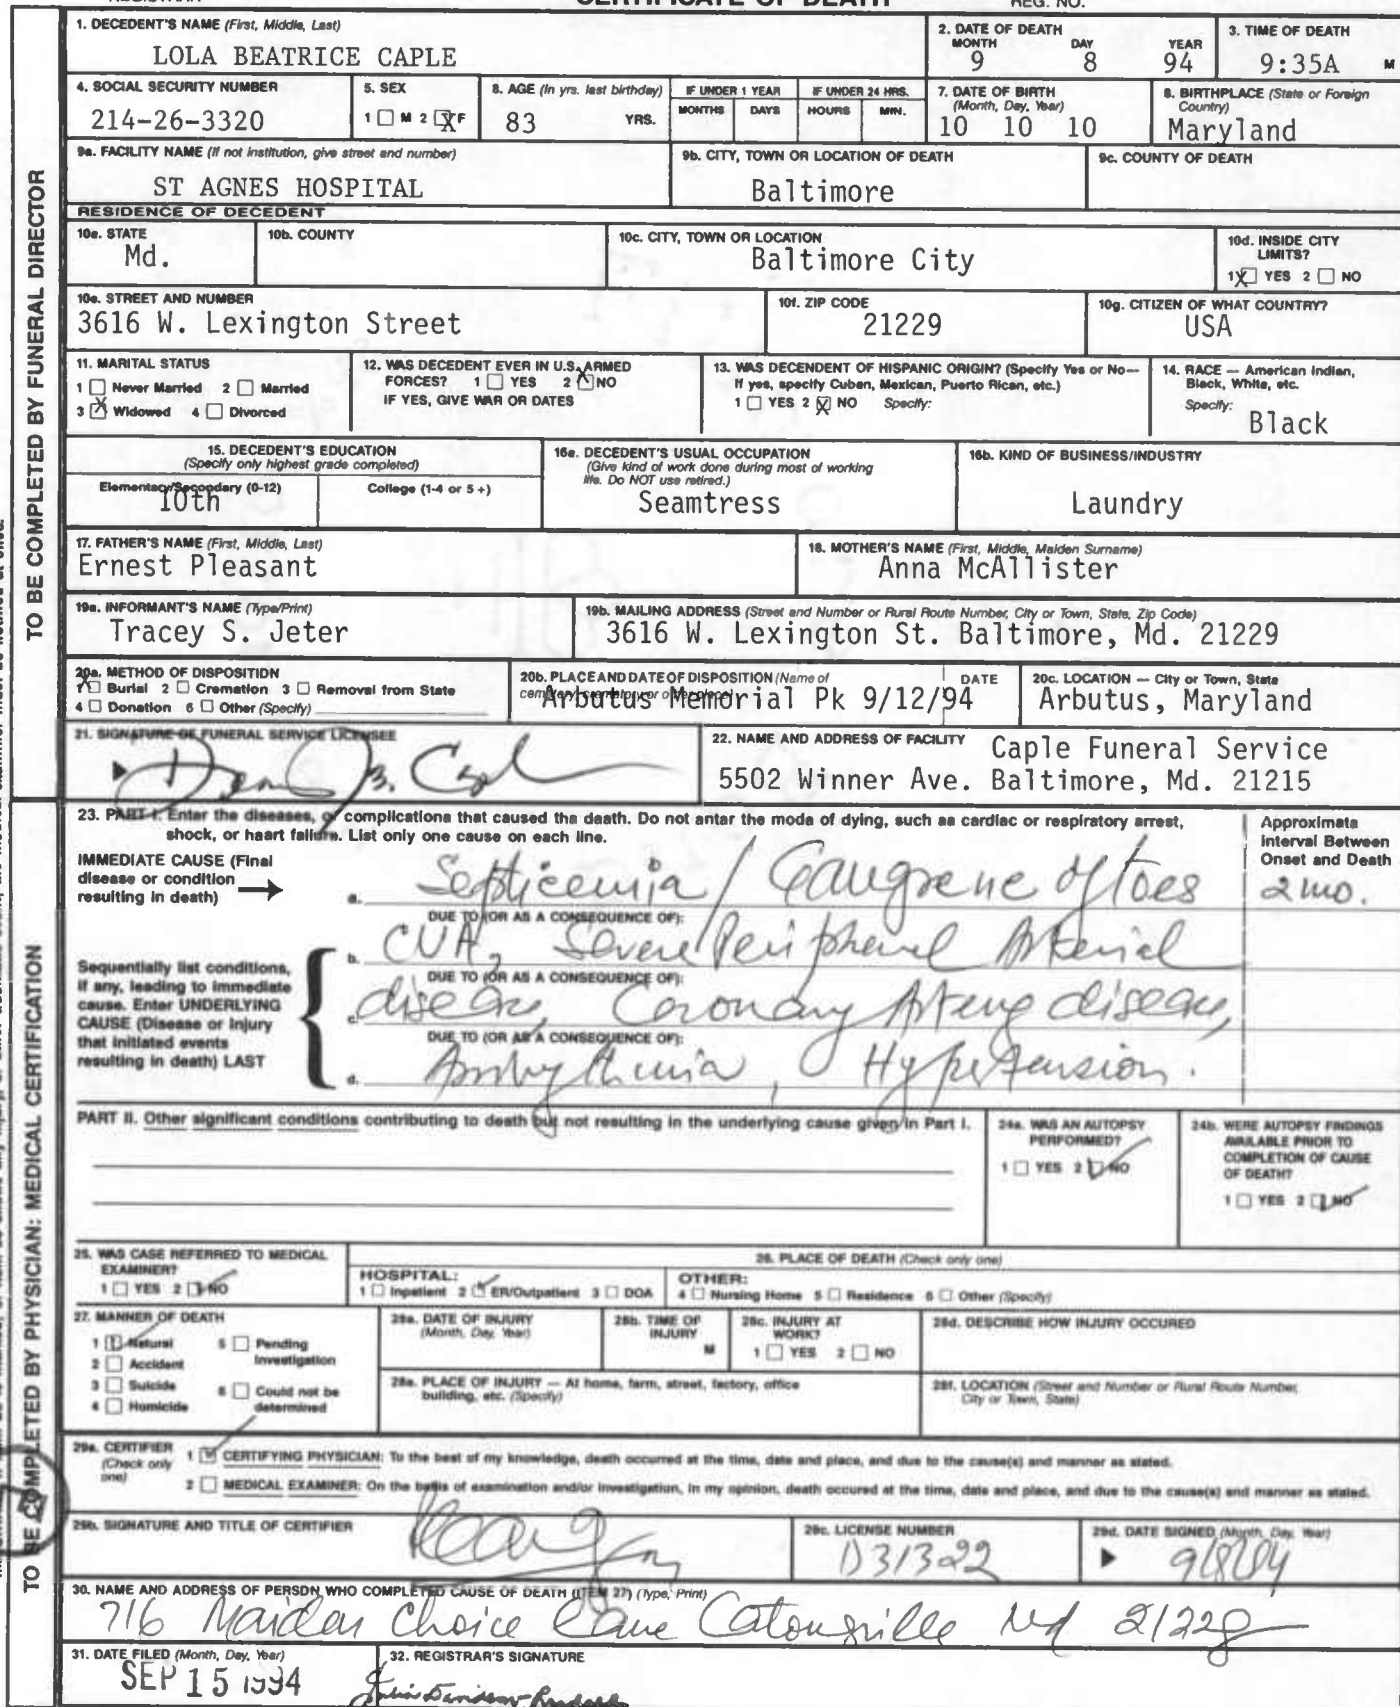 CERTIFICATE OF DEATH
REG. NO.
1. DECEDENT'S NAME (First, Middle, Last)
LOLA BEATRICE CAPLE
2. DATE OF DEATH
MONTH DAY YEAR
9 8 94
3. TIME OF DEATH
9:35A M
4. SOCIAL SECURITY NUMBER
214-26-3320
5. SEX
1 M 2 X F
6. AGE (In yrs. last birthday)
83 YRS.
IF UNDER 1 YEAR
MONTHS DAYS
IF UNDER 24 HRS.
HOURS MIN.
7. DATE OF BIRTH
(Month, Day, Year)
10 10 10
8. BIRTHPLACE (State or Foreign
Country)
Maryland
9a. FACILITY NAME (If not institution, give street and number)
ST AGNES HOSPITAL
9b. CITY, TOWN OR LOCATION OF DEATH
Baltimore
9c. COUNTY OF DEATH
RESIDENCE OF DECEDENT
10a. STATE
Md.
10b. COUNTY
10c. CITY, TOWN OR LOCATION
Baltimore City
10d. INSIDE CITY
LIMITS?
1 X YES 2 NO
10e. STREET AND NUMBER
3616 W. Lexington Street
10f. ZIP CODE
21229
10g. CITIZEN OF WHAT COUNTRY?
USA
11. MARITAL STATUS
1 Never Married 2 Married
3 X Widowed 4 Divorced
12. WAS DECEDENT EVER IN U.S. ARMED
FORCES? 1 YES 2 X NO
IF YES, GIVE WAR OR DATES
13. WAS DECENDENT OF HISPANIC ORIGIN? (Specify Yes or No—
If yes, specify Cuban, Mexican, Puerto Rican, etc.)
1 YES 2 X NO Specify:
14. RACE — American Indian,
Black, White, etc.
Specify:
Black
15. DECEDENT'S EDUCATION
(Specify only highest grade completed)
Elementary/Secondary (0-12)
10th
College (1-4 or 5+)
16a. DECEDENT'S USUAL OCCUPATION
(Give kind of work done during most of working
life. Do NOT use retired.)
Seamtress
16b. KIND OF BUSINESS/INDUSTRY
Laundry
17. FATHER'S NAME (First, Middle, Last)
Ernest Pleasant
18. MOTHER'S NAME (First, Middle, Maiden Surname)
Anna McAllister
19a. INFORMANT'S NAME (Type/Print)
Tracey S. Jeter
19b. MAILING ADDRESS (Street and Number or Rural Route Number, City or Town, State, Zip Code)
3616 W. Lexington St. Baltimore, Md. 21229
20a. METHOD OF DISPOSITION
1 X Burial 2 Cremation 3 Removal from State
4 Donation 5 Other (Specify)
20b. PLACE AND DATE OF DISPOSITION (Name of
cemetery, crematory or other place) DATE
Arbutus Memorial Pk 9/12/94
20c. LOCATION — City or Town, State
Arbutus, Maryland
21. SIGNATURE OF FUNERAL SERVICE LICENSEE
22. NAME AND ADDRESS OF FACILITY Caple Funeral Service
5502 Winner Ave. Baltimore, Md. 21215
23. PART I. Enter the diseases, or complications that caused the death. Do not enter the mode of dying, such as cardiac or respiratory arrest,
shock, or heart failure. List only one cause on each line.
Approximate
Interval Between
Onset and Death
IMMEDIATE CAUSE (Final
disease or condition
resulting in death)
a. Septicemia / Gangrene of toes 2 mo.
DUE TO (OR AS A CONSEQUENCE OF):
b. CVA, Severe Peripheral Arterial
Sequentially list conditions,
if any, leading to immediate
cause. Enter UNDERLYING
CAUSE (Disease or injury
that initiated events
resulting in death) LAST
DUE TO (OR AS A CONSEQUENCE OF):
c. disease, Coronary Artery disease,
DUE TO (OR AS A CONSEQUENCE OF):
d. Arrhythmia, Hypertension.
PART II. Other significant conditions contributing to death but not resulting in the underlying cause given in Part I.
24a. WAS AN AUTOPSY
PERFORMED?
1 YES 2 NO
24b. WERE AUTOPSY FINDINGS
AVAILABLE PRIOR TO
COMPLETION OF CAUSE
OF DEATH?
1 YES 2 NO
25. WAS CASE REFERRED TO MEDICAL
EXAMINER?
1 YES 2 NO
26. PLACE OF DEATH (Check only one)
HOSPITAL:
1 Inpatient 2 ER/Outpatient 3 DOA
OTHER:
4 Nursing Home 5 Residence 6 Other (Specify)
27. MANNER OF DEATH
1 Natural 5 Pending
Investigation
2 Accident
3 Suicide 6 Could not be
determined
4 Homicide
28a. DATE OF INJURY
(Month, Day, Year)
28b. TIME OF
INJURY
M
28c. INJURY AT
WORK?
1 YES 2 NO
28d. DESCRIBE HOW INJURY OCCURED
28e. PLACE OF INJURY — At home, farm, street, factory, office
building, etc. (Specify)
28f. LOCATION (Street and Number or Rural Route Number,
City or Town, State)
29a. CERTIFIER
(Check only
one)
1 CERTIFYING PHYSICIAN: To the best of my knowledge, death occurred at the time, date and place, and due to the cause(s) and manner as stated.
2 MEDICAL EXAMINER: On the basis of examination and/or investigation, in my opinion, death occured at the time, date and place, and due to the cause(s) and manner as stated.
29b. SIGNATURE AND TITLE OF CERTIFIER
29c. LICENSE NUMBER
D31322
29d. DATE SIGNED (Month, Day, Year)
30. NAME AND ADDRESS OF PERSON WHO COMPLETED CAUSE OF DEATH (ITEM 27) (Type, Print)
716 Maiden Choice Lane Catonsville Md 21228
31. DATE FILED (Month, Day, Year)
SEP 15 1994
32. REGISTRAR'S SIGNATURE
TO BE COMPLETED BY FUNERAL DIRECTOR
TO BE COMPLETED BY PHYSICIAN: MEDICAL CERTIFICATION